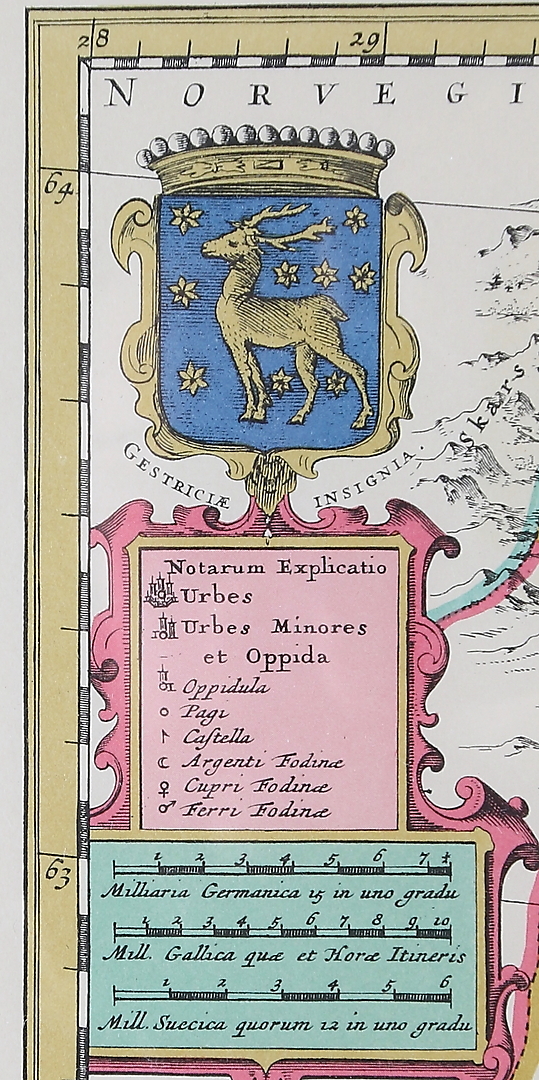 28 29
N O R V E G I
64
Skars
GESTRICIÆ INSIGNIA.
Notarum Explicatio
Urbes
Urbes Minores
et Oppida
Oppidula
Pagi
Caſtella
Argenti Fodinæ
Cupri Fodinæ
Ferri Fodinæ
63
1 2 3 4 5 6 7 ½
Milliaria Germanica 15 in uno gradu
1 2 3 4 5 6 7 8 9 10
Mill. Gallica quæ et Horæ Itineris
1 2 3 4 5 6
Mill. Suecica quorum 12 in uno gradu